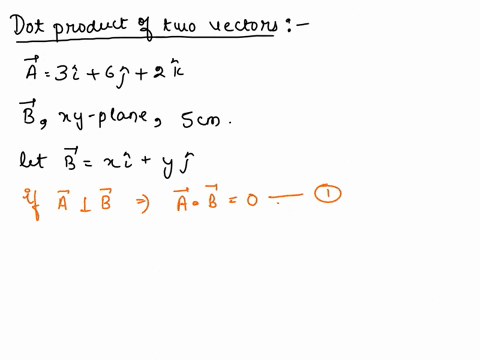 Dot product of two vectors :-
A⃗ = 3î + 6ĵ + 2k̂
B⃗, xy-plane, 5cm.
let B⃗ = xî + yĵ
if A⃗ ⊥ B⃗ ⇒ A⃗ • B⃗ = 0 — ①